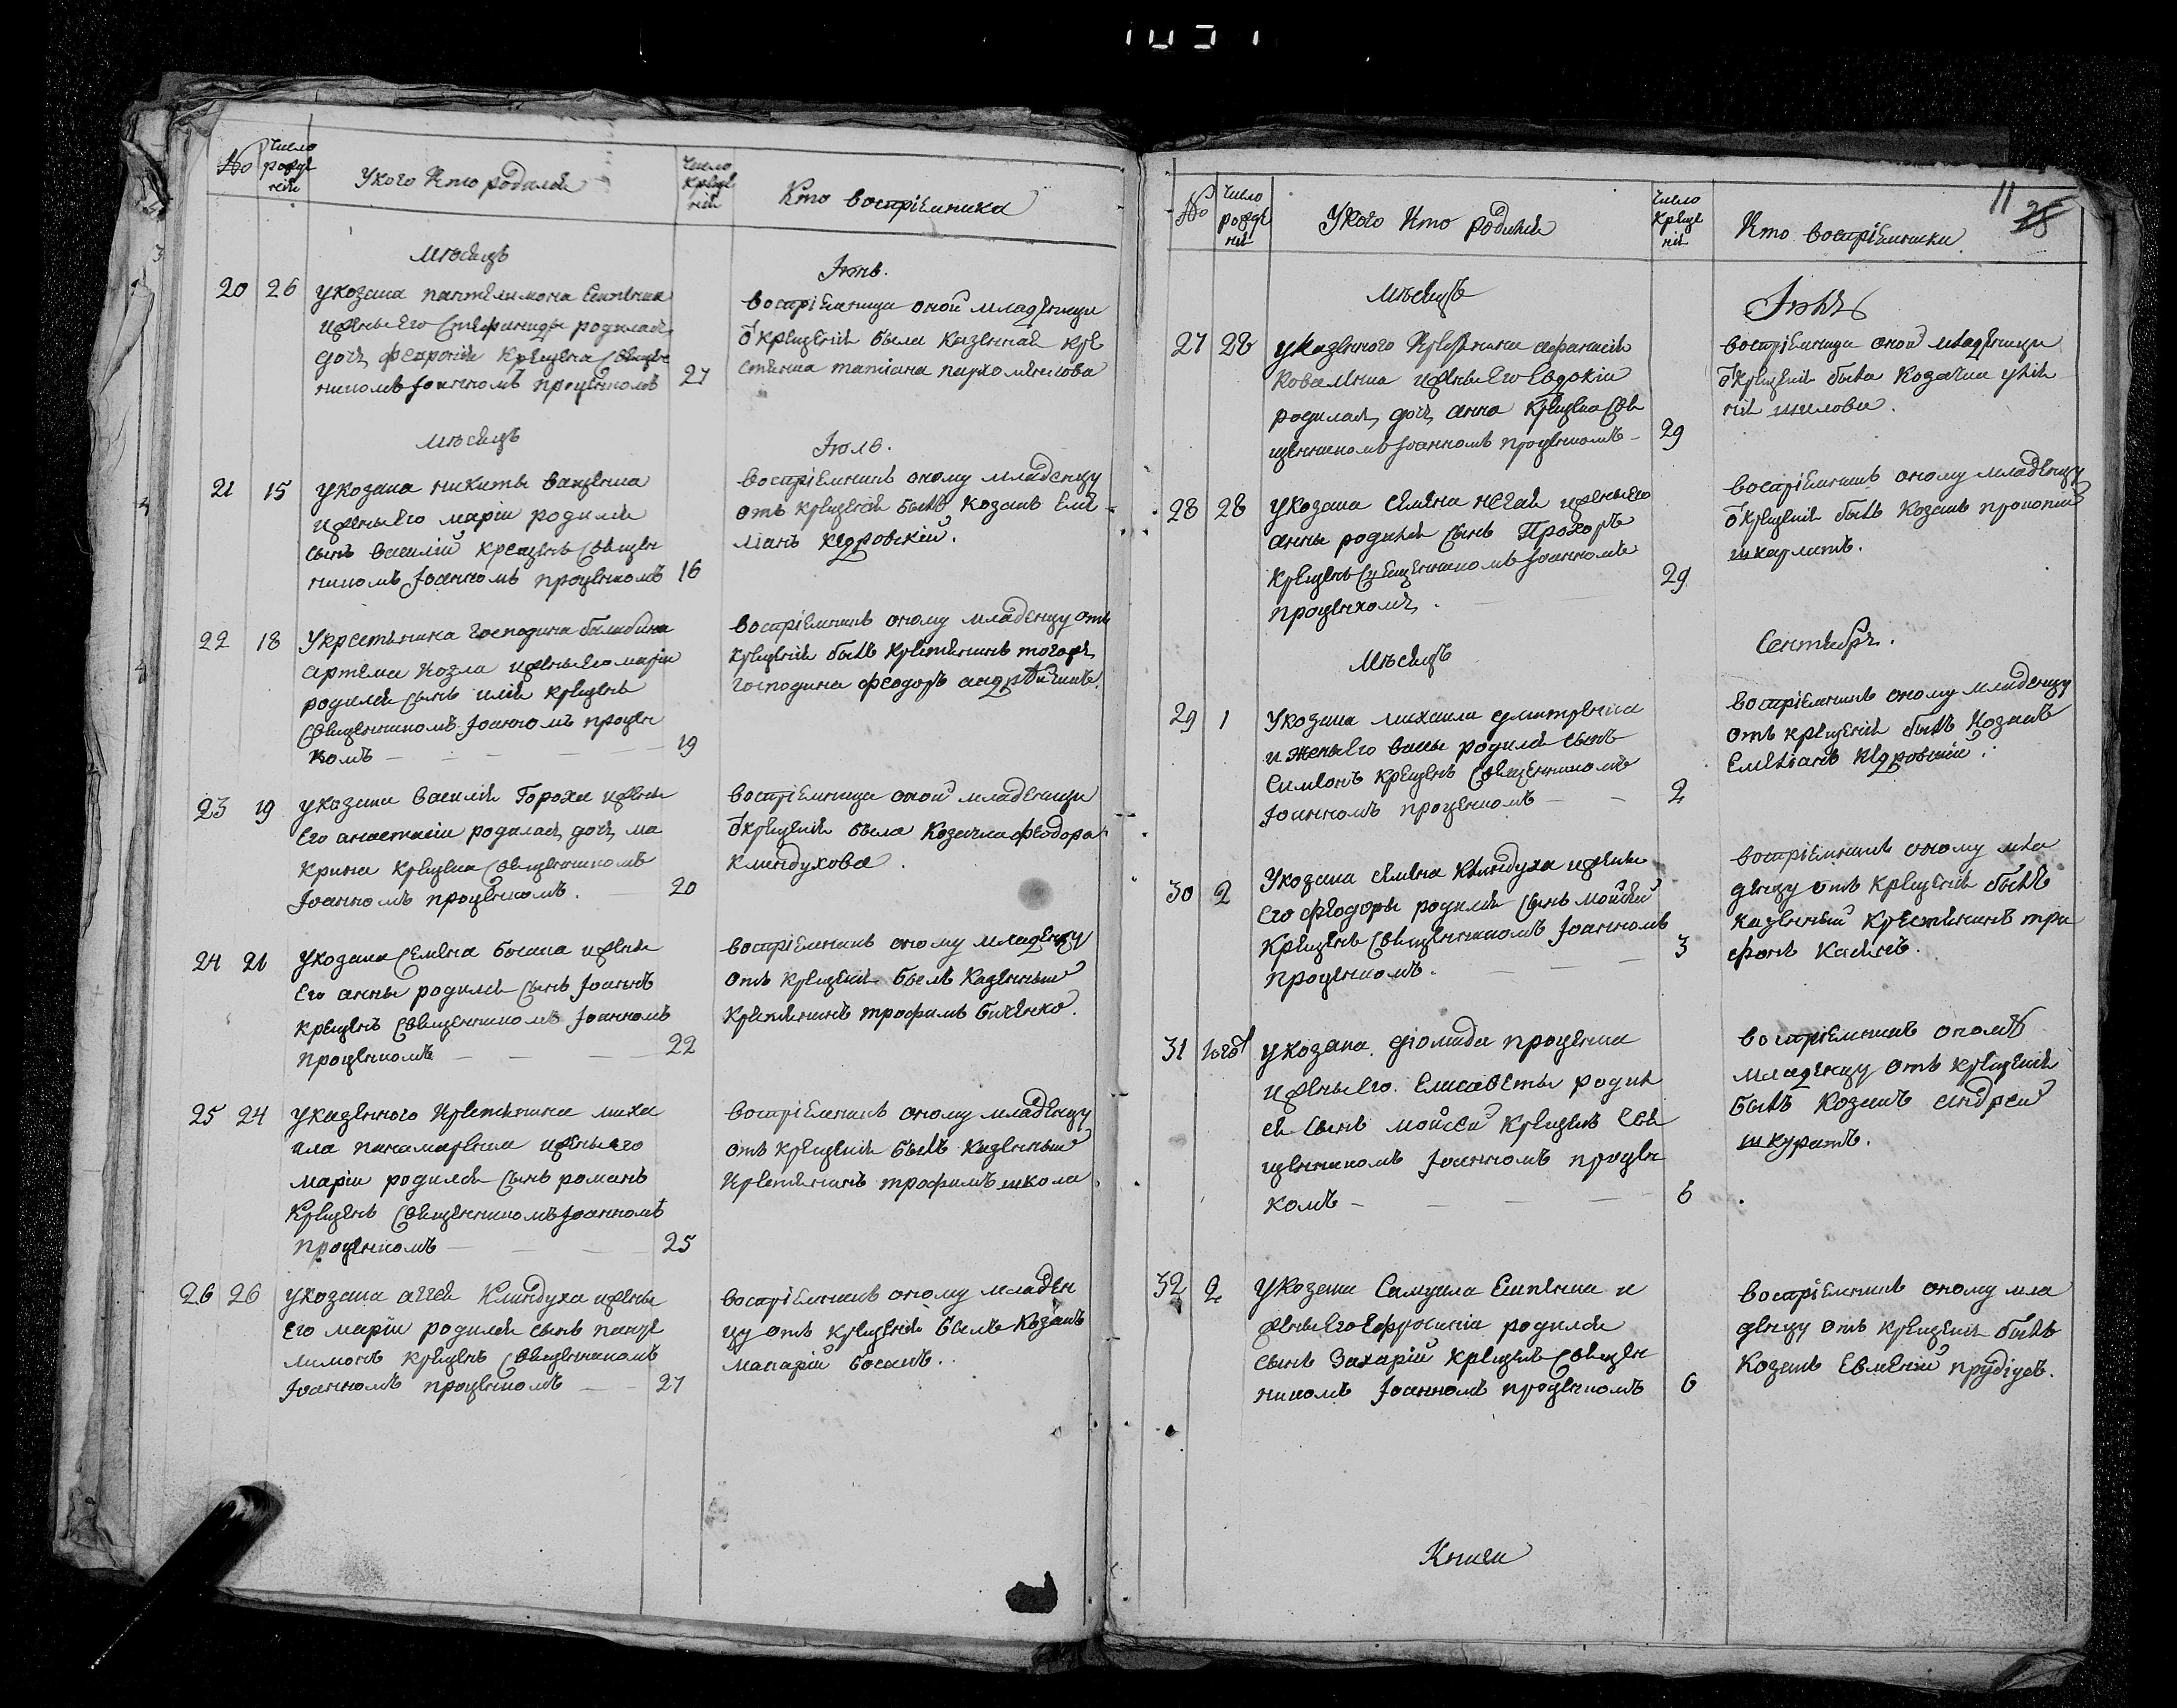 №
Число рожде нія
У кого кто родился
Число креще нія
Кто воспріемники
Мѣсяцъ
Іюнь.
20 26 У козака пантелимона
и жены его Стефаниды родилась
дочь феврония крещена Священ
никомъ Іоанномъ проценкомъ 27
воспріемница оной младеници
от крещенія была казенная кре
стянка татіана пархоменкова
Мѣсяцъ
Іюль.
21 15 У козака никиты ваценка
и жены его маріи родился
сынъ василій крещенъ Священ
никомъ Іоанномъ проценкомъ 16
воспріемникъ оному младенцу
отъ крещенія былъ козакъ Еме
ліанъ кедровскій.
22 18 У крестянина господина балабина
артема козла и жены его маріи
родился сынъ илія крещенъ
Священникомъ Іоанномъ процен
комъ 19
воспріемникъ оному младенцу отъ
крещенія былъ крестянинъ тогожъ
господина феодоръ
23 19 У козака василія Гороха и жены
его анастасіи родилась дочь ма
крина крещена Священникомъ
Іоанномъ проценкомъ. 20
воспріемница оной младеници
от крещенія была козачка феодора
клиндухова.
24 21 У козака Семена босака и жены
его анны родился сынъ Іоаннъ
крещенъ Священникомъ Іоанномъ
проценкомъ 22
воспріемникъ оному младенцу
отъ крещенія былъ казенный
крестянинъ трофимъ биченко.
25 24 У казенного крестянина миха
ила панамаренка и жены его
маріи родился сынъ романъ
крещенъ Священникомъ Іоанномъ
проценкомъ 25
воспріемникъ оному младенцу
отъ крещенія былъ казенный
крестянинъ трофимъ школа
26 26 У козака аггея клиндуха и жены
его маріи родился сынъ панте
лимонъ крещенъ Священникомъ
Іоанномъ проценкомъ 27
воспріемникъ оному младен
цу отъ крещенія былъ козакъ
макарій босакъ.
11 28
№
Число рожде нія
У кого кто родился
Число креще нія
Кто воспріемники
Мѣсяцъ
Іюль
27 28 У казенного крестянина афанасія
коваленка и жены его Евдокіи
родилась дочь анна крещена Свя
щенникомъ Іоанномъ проценкомъ 29
воспріемница оной младеници
от крещенія была козачка
шилова.
28 28 У козака семена негая и жены его
анны родился сынъ Прохоръ
крещенъ Священникомъ Іоанномъ
проценкомъ. 29
воспріемникъ оному младенцу
от крещенія былъ козакъ прокопій
шкарлатъ.
Мѣсяцъ
Сентябрь.
29 1 У козака михаила дмитренка
и жены его родился сынъ
симеонъ крещенъ Священникомъ
Іоанномъ проценкомъ 2
воспріемникъ оному младенцу
отъ крещенія былъ козакъ
Емеліанъ кедровскій.
30 2 У козака семена клиндуха и жены
его феодоры родился сынъ мойсей
крещенъ Священникомъ Іоанномъ
проценкомъ. 3
воспріемникъ оному мла
денцу отъ крещенія былъ
казенный крестянинъ три
фонъ
31 У козака діомида проценка
и жены его Елисаветы родил
ся сынъ мойсей крещенъ Свя
щенникомъ Іоанномъ процен
комъ 6
воспріемникъ оному
младенцу отъ крещенія
былъ козакъ андрей
шкуратъ.
32 2 У козака Самуила и
жены его Ефросиніи родился
сынъ Захарій крещенъ Священ
никомъ Іоанномъ проценкомъ 6
воспріемникъ оному мла
денцу отъ крещенія былъ
козакъ Евменій
Книги